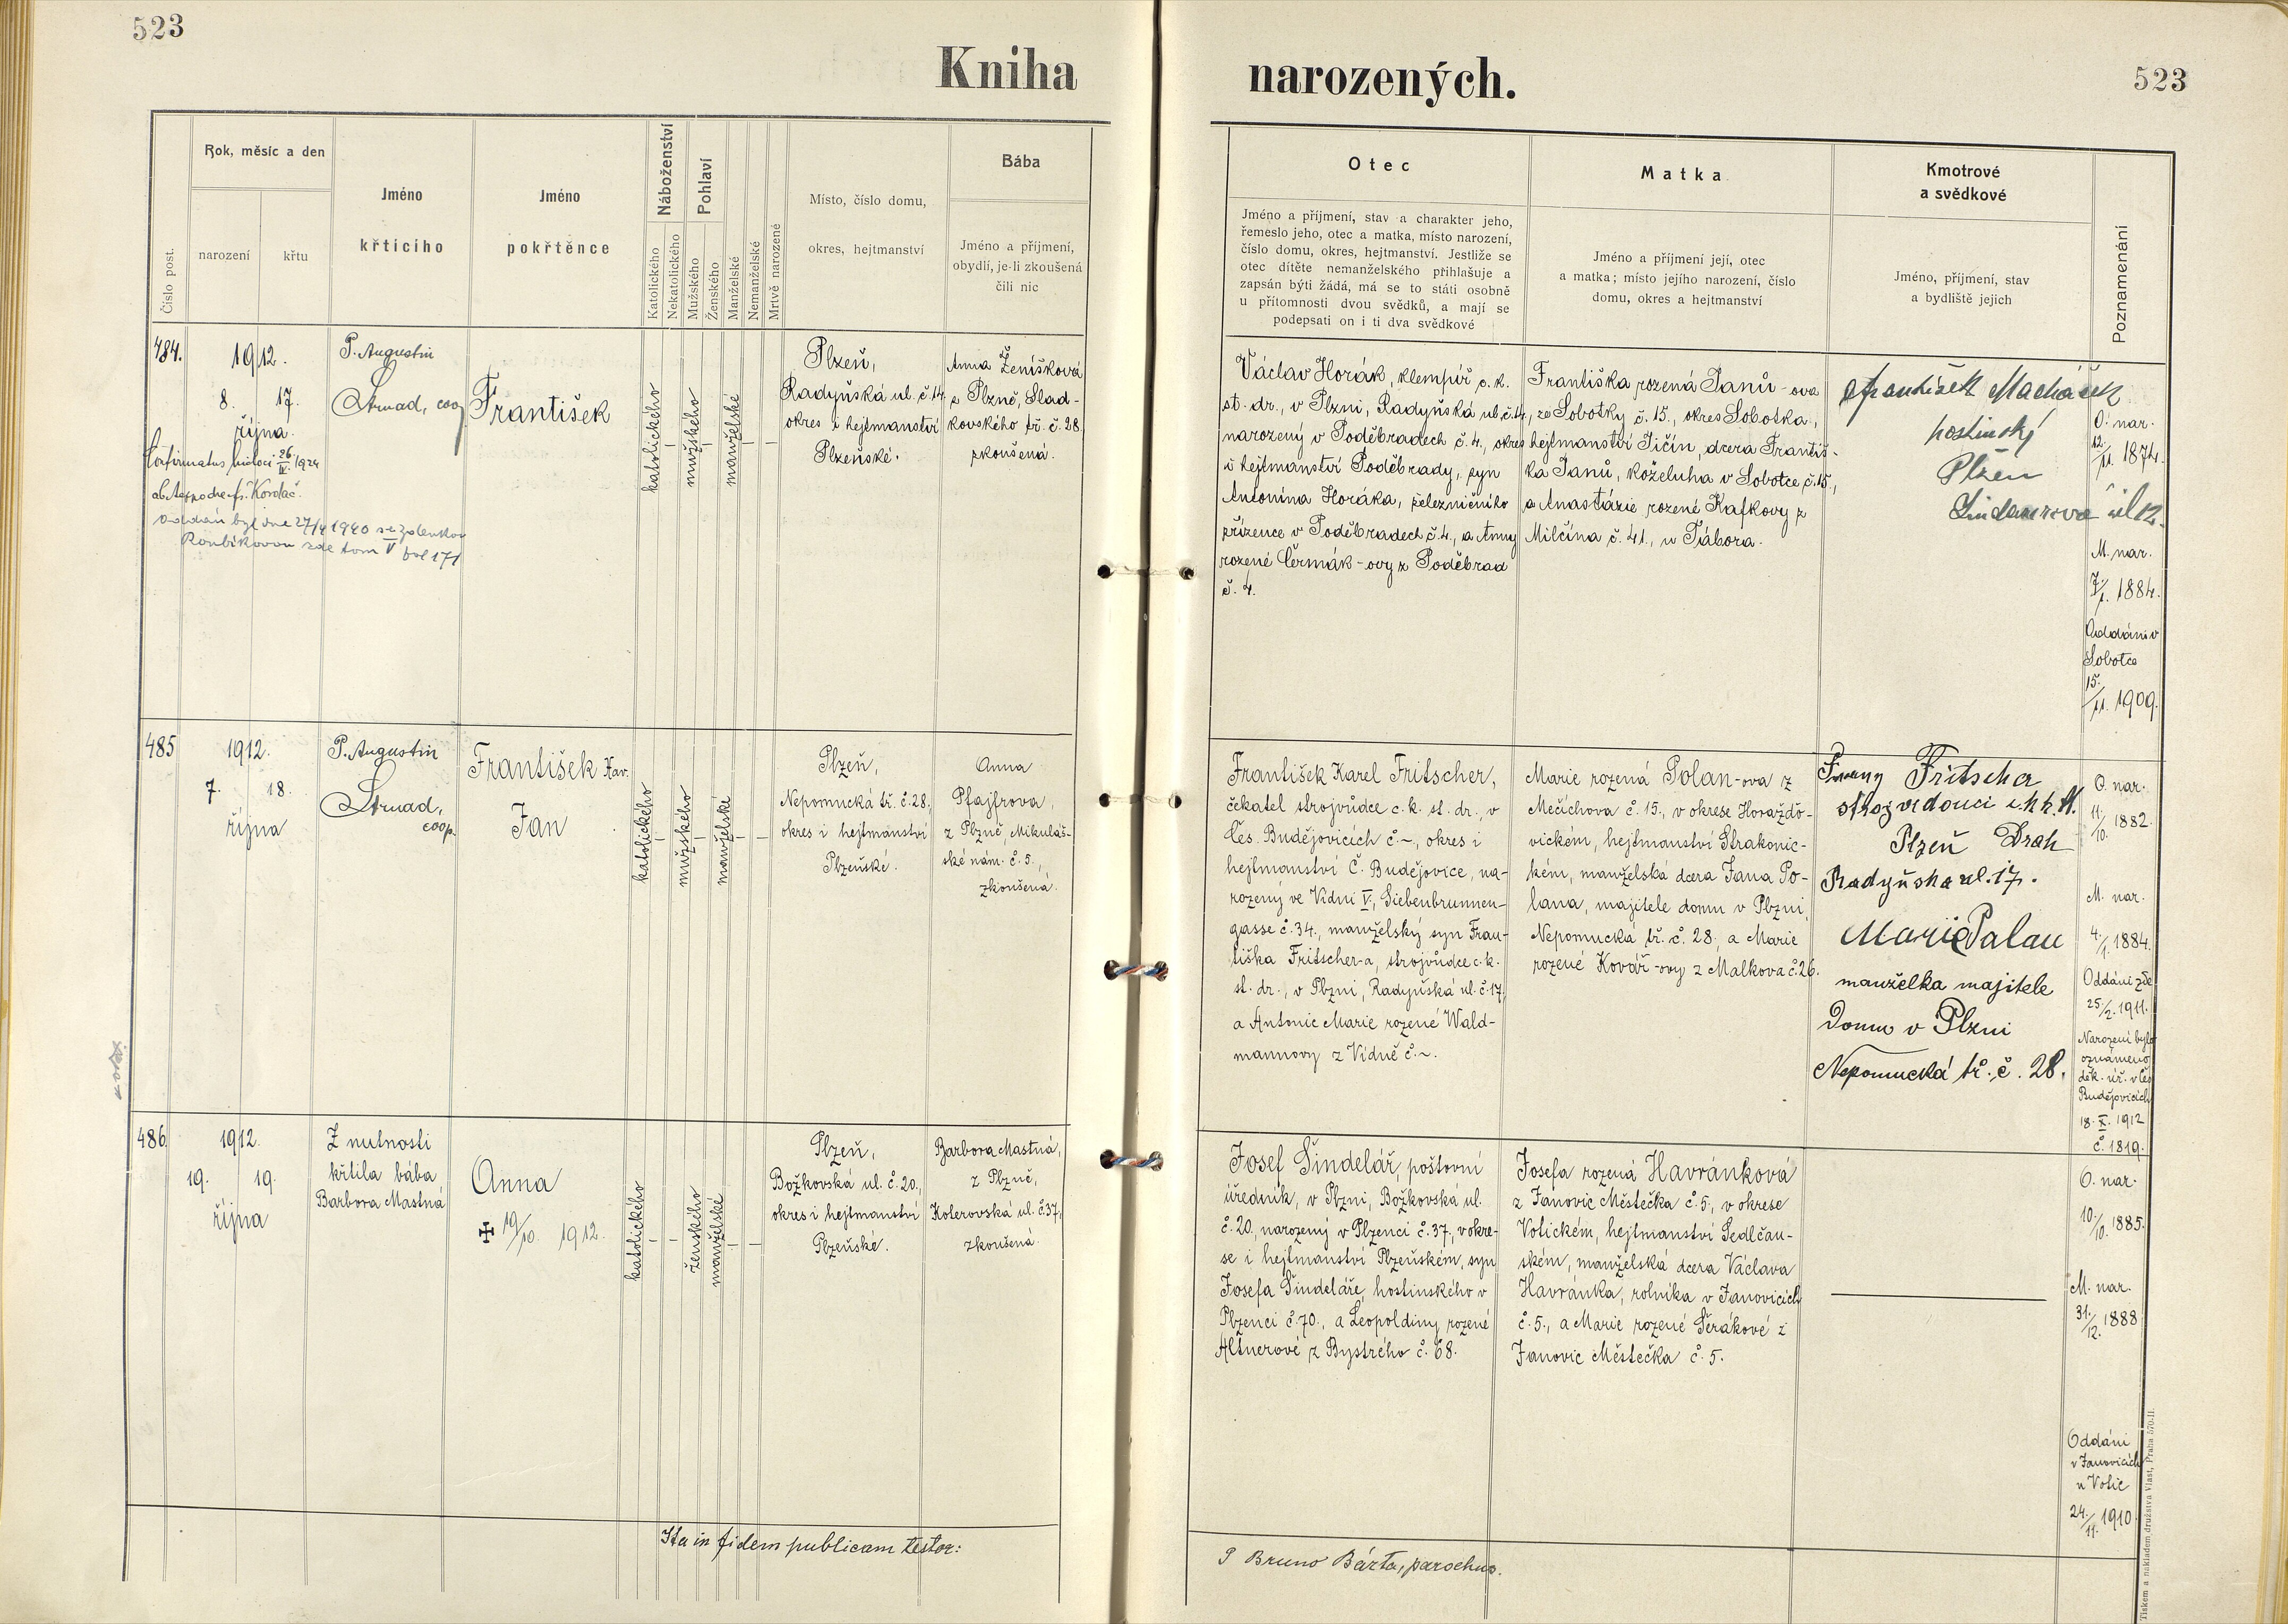 523
Kniha
narozených.
523
Číslo post.
Rok, měsíc a den
narození
křtu
Jméno
křticího
Jméno
pokřtěnce
Náboženství
Katolického
Nekatolického
Pohlaví
Mužského
Ženského
Manželské
Nemanželské
Mrtvě narozené
Místo, číslo domu,
okres, hejtmanství
Bába
Jméno a příjmení,
obydlí, je-li zkoušená
čili nic
Otec
Jméno a příjmení, stav a charakter jeho,
řemeslo jeho, otec a matka, místo narození,
číslo domu, okres, hejtmanství. Jestliže se
otec dítěte nemanželského přihlašuje a
zapsán býti žádá, má se to státi osobně
u přítomnosti dvou svědků, a mají se
podepsati on i ti dva svědkové
Matka
Jméno a příjmení její, otec
a matka; místo jejího narození, číslo
domu, okres a hejtmanství
Kmotrové
a svědkové
Jméno, příjmení, stav
a bydliště jejich
Poznamenání
484.
1912.
8. 17.
října.
Confirmatus 26/IV. 1924
ab Kordač.
oddán byl dne 27/4 1940 se Zdenkou
Roubíkovou zde tom V fol 171
P. Augustin
Strnad, coop
František
katolického
–
mužského
–
manželské
–
–
Plzeň,
Radyňská ul. č. 14,
okres i hejtmanství
Plzeňské.
Anna Ženíšková
z Plzně, Slad-
kovského tř. č. 28.
zkoušená.
Václav Horák, klempíř c. k.
st. dr., v Plzni, Radyňská ul. č. 14,
narozený v Poděbradech č. 4., okres
i hejtmanství Poděbrady, syn
Antonína Horáka, železničního
zřízence v Poděbradech č. 4., a Anny
rozené Čermák-ovy z Poděbrad
č. 4.
Františka rozená Janů-ova
ze Sobotky č. 15., okres Sobotka,
hejtmanství Jičín, dcera Františ-
ka Janů, koželuha v Sobotce č. 15.,
a Anastázie rozené Kafkovy z
Milčína č. 41., u Tábora.
František Macháček
hostinský
Plzeň
ul 12.
O. nar.
12./11. 1874.
M. nar.
7./1. 1884.
Oddáni v
Sobotce
15./11. 1909.
485
1912.
7. 18.
října
P. Augustin
Strnad,
coop.
František Xav.
Jan
katolického
–
mužského
–
manželské
–
–
Plzeň,
Nepomucká tř. č. 28.,
okres i hejtmanství
Plzeňské.
Anna
Plajfrova,
z Plzně, Mikuláš-
ské nám. č. 5.,
zkoušená.
František Karel Fritscher,
čekatel strojvůdce c. k. st. dr., v
Čes. Budějovicích č. ~, okres i
hejtmanství Č. Budějovice, na-
rozený ve Vídni V., Siebenbrunnen-
gasse č. 34., manželský syn Fran-
tiška Fritscher-a, strojvůdce c. k.
st. dr., v Plzni, Radyňská ul. č. 17,
a Antonie Marie rozené Wald-
mannovy z Vídně č. ~.
Marie rozená Polan-ova z
Mečíchova č. 15., v okrese Horažďo-
vickém, hejtmanství Strakonic-
kém, manželská dcera Jana Po-
lana, majitele domu v Plzni,
Nepomucká tř. č. 28., a Marie
rozené Kovář-ovy z Malkova č. 26.
Franz Fritscher
strojvdouci c. k. k. st.
Plzeň Drah
Radyňska ul. 17.
Marie Palau
manželka majitele
Domu v Plzni
Nepomucká tř. č. 28.
O. nar.
11./10. 1882.
M. nar.
4./1. 1884.
Oddáni zde
25./2. 1911.
Narození bylo
oznámeno
děk. úř. v Čes
Budějovicích
18. X. 1912
č. 1819.
486
1912.
19. 19.
října
Z nutnosti
křtila bába
Barbora Mastná
Anna
✠ 19/10. 1912.
katolického
–
–
ženského
manželské
–
–
Plzeň,
Božkovská ul. č. 20.,
okres i hejtmanství
Plzeňské.
Barbora Mastná,
z Plzně,
Kolerovská ul. č. 37,
zkoušená.
Josef Šindelář, poštovní
úředník, v Plzni, Božkovská ul.
č. 20., narozený v Plzenci č. 37., v okre-
se i hejtmanství Plzeňském, syn
Josefa Šindeláře, hostinského v
Plzenci č. 70., a Leopoldiny rozené
Altnerové z Bystrého č. 68.
Josefa rozená Havránková
z Janovic Městečka č. 5., v okrese
Votickém, hejtmanství Sedlčan-
ském, manželská dcera Václava
Havránka, rolníka v Janovicích
č. 5., a Marie rozené Šerákové z
Janovic Městečka č. 5.
O. nar.
10./10. 1885.
M. nar.
31./12. 1888
Oddáni
v Janovicích
u Votic
24./11. 1910
Ita in fidem publicam testor:
P Bruno Bárta, parochus.
Tiskem a nákladem družstva Vlast, Praha 570-II.